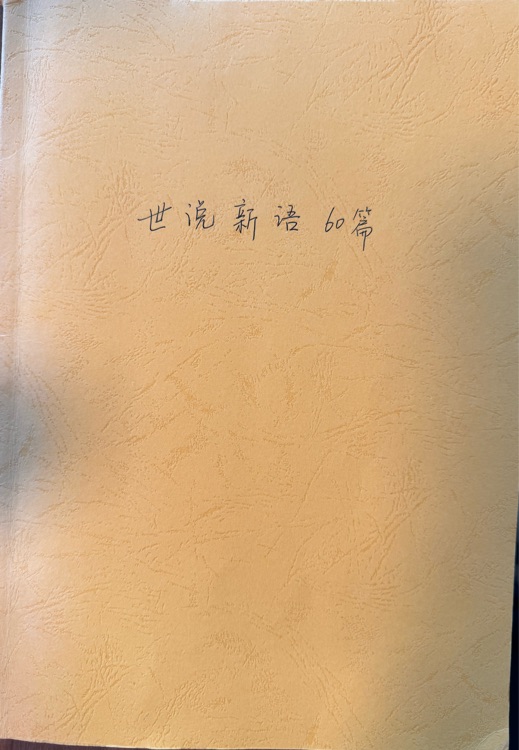 世说新语 60篇